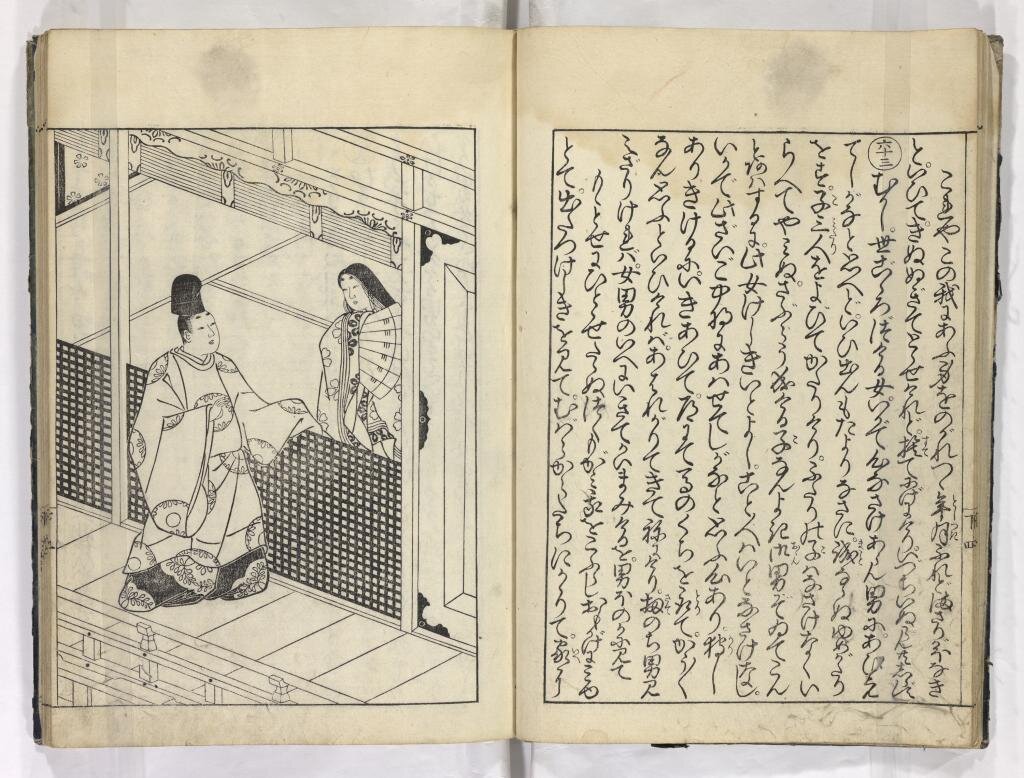 これやこの我にあふ身をのがれつゝ年月ふれどまさりがほなき
といひてきぬぬぎてとらせけれど捨てにげにけりいづちいぬらんともしらず
六十三 むかし世ごゝろつける女いかで心なさけあらん男にあひえ
てしがなと思へどいひ出んもたよりなさに誠ならぬゆめがたり
をす子三人をよびてかたりけりふたりの子はなさけなくい
らへてやみぬさぶらう成ける子なんよき御男ぞゐでこん
とあはするに此女けしきいとよしこと人はいとなさけなし
いかで此ざいご中将にあはせてしがなと思ふ心あり狩し
ありきけるにいきあひて道にてむまのくちをとりてかう〳〵
なん思ふといひければあはれがりてきて寝にけり扨のち男見
えざりければ女男のいへにいきてかいまみけるを男ほのかに見て
もゝとせにひとゝせたらぬつくもがみ我をこふらしおもかげにみゆ
とて出たつけしきを見てむばらからたちにかゝりて家に